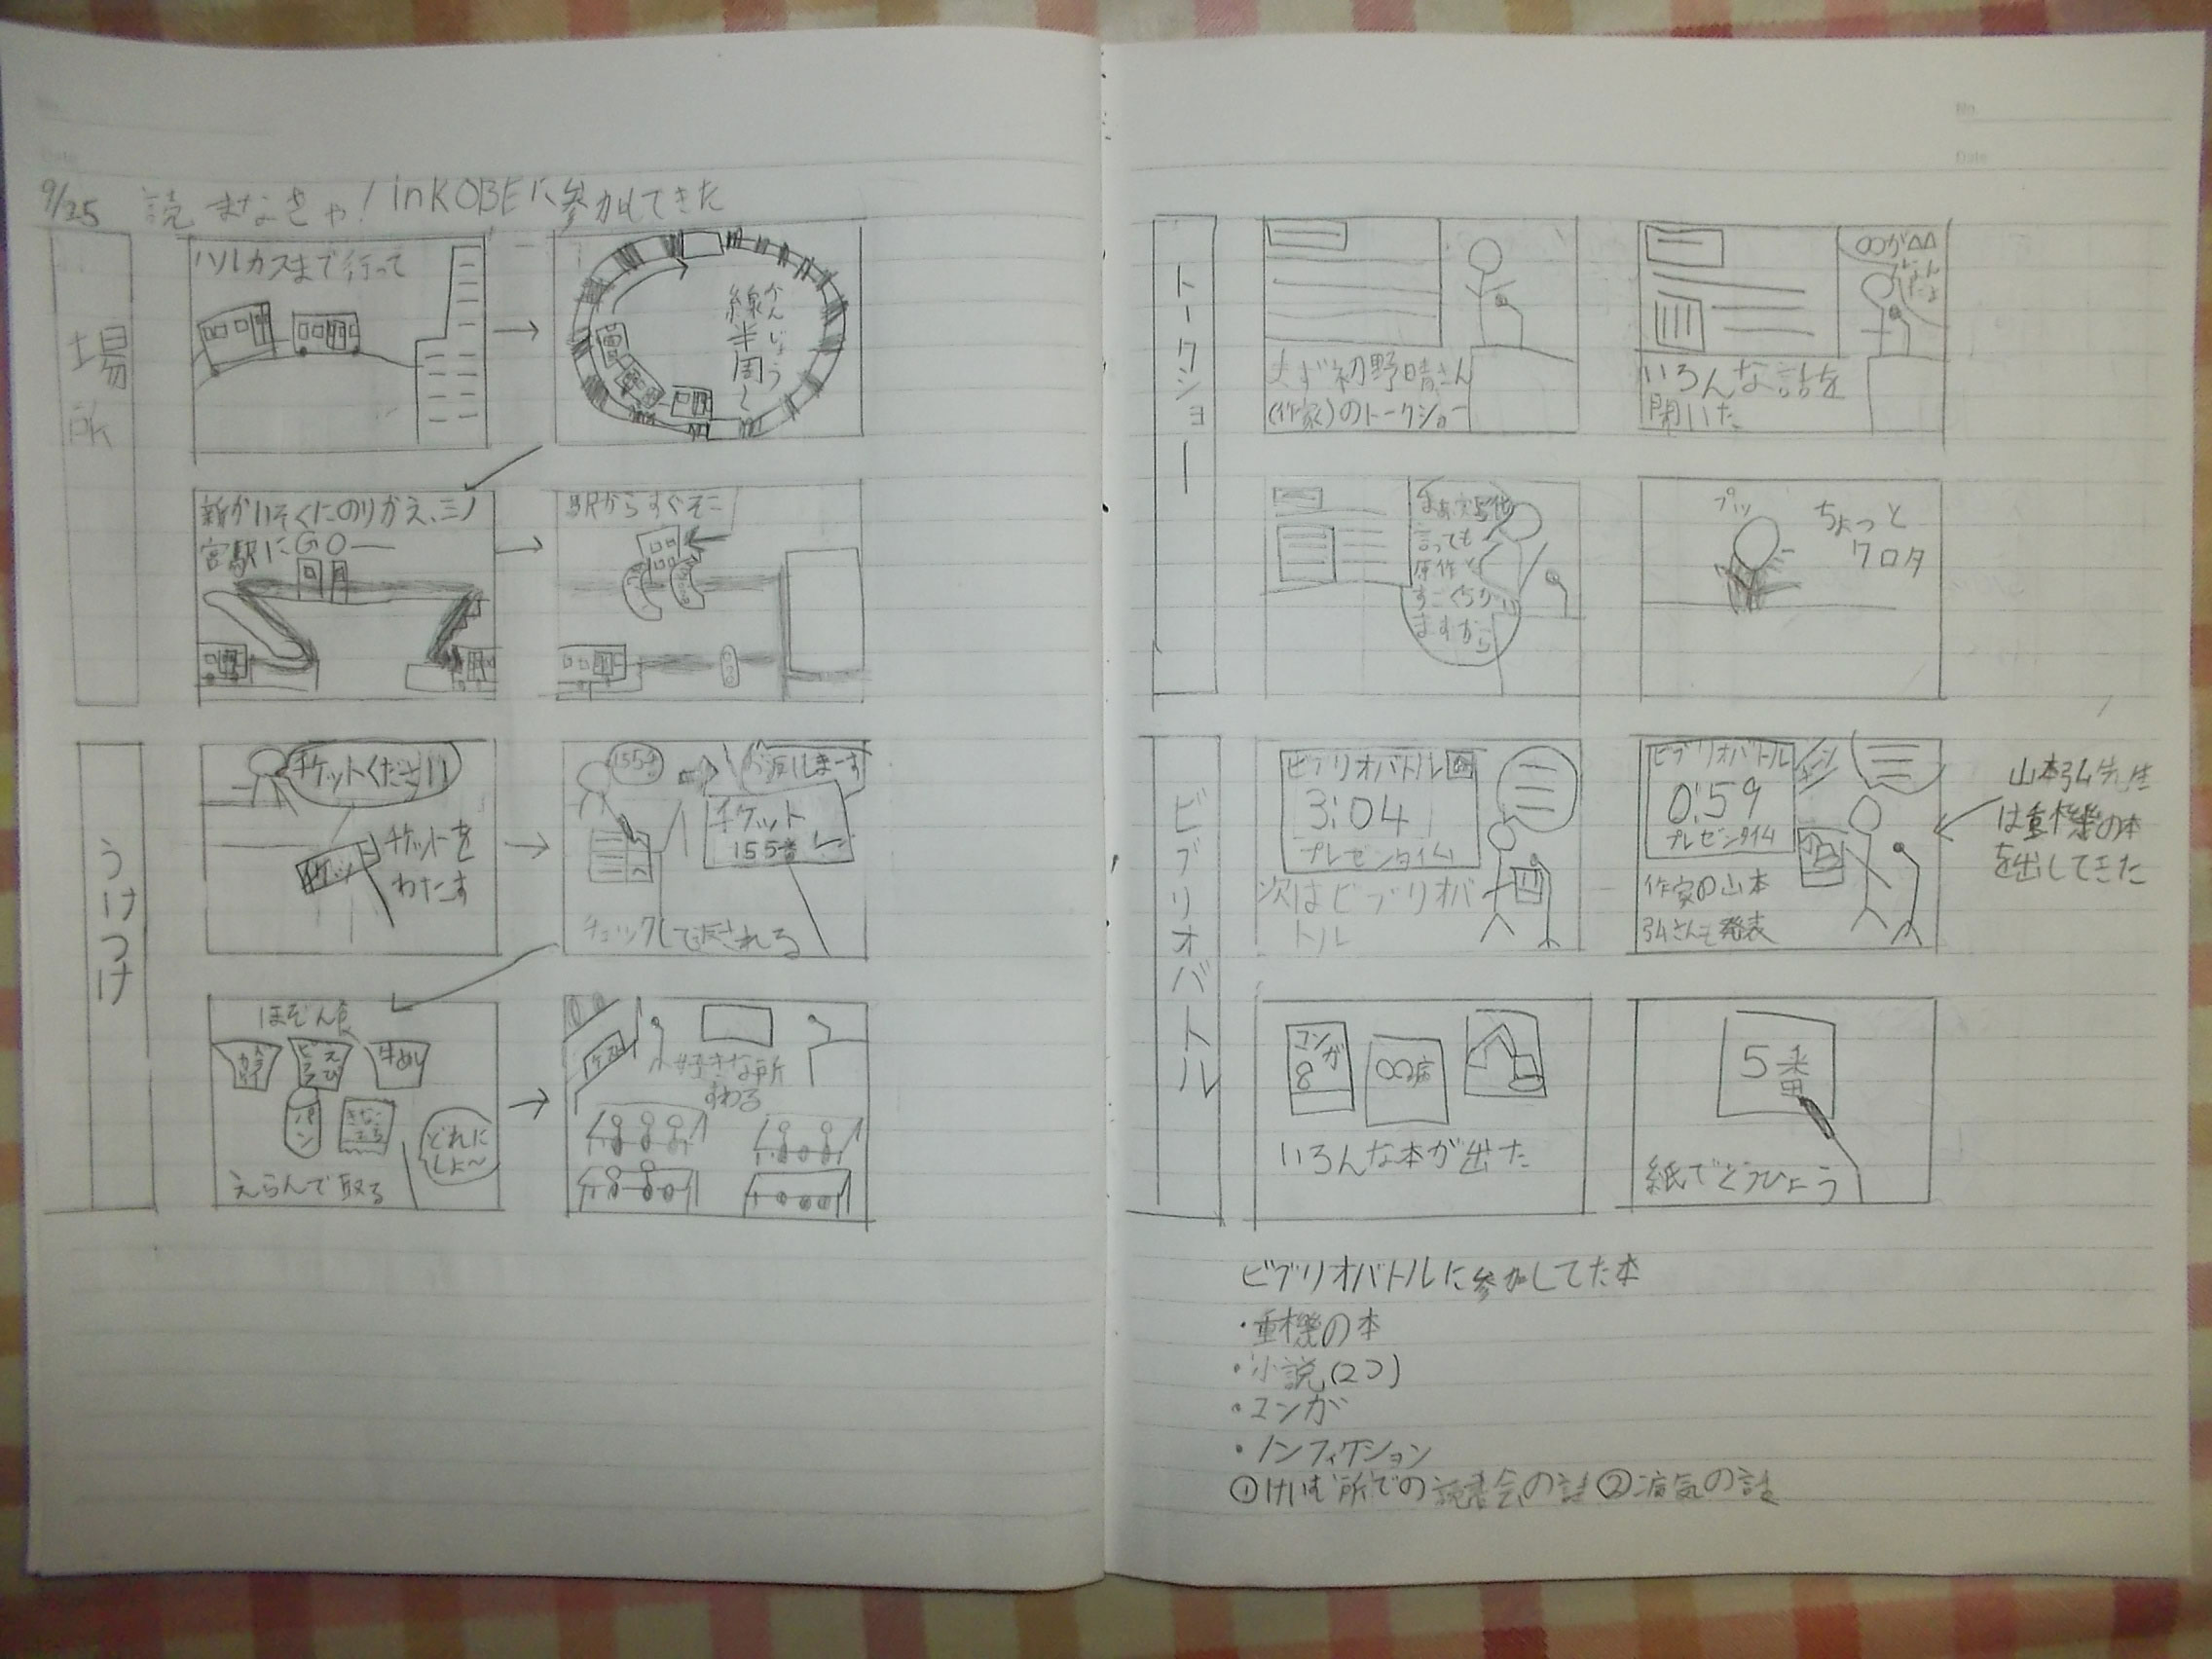 9/25 読まなきゃ!inKOBEに参加してきた
場所
ハルカスまで行って
かんじょう
線半周〜
新かいそくにのりかえ、三ノ
宮駅にGOー
駅からすぐそこ
うけつけ
チケットください
チケットを
わたす
155番
お返しまーす
チケット
155番
チェックして返される
ほぞん食
えび
ピラフ
牛めし
パン
きな
どれに
しよ〜
えらんで取る
好きな所
すわる
トークショー
まず初野晴さん
(作家)のトークショー
○○が△△
なん
だよ
いろんな話を
聞いた
まあ実写化
言っても
原作と
すごくちがい
ますから
プッ
ちょっと
ワロタ
ビブリオバトル
ビブリオバトル
3:04
プレゼンタイム
次はビブリオバ
トル
ビブリオバトル
0:59
プレゼンタイム
作家の山本
弘さんも発表
山本弘先生
は重機の本
を出してきた
マンガ
8
○○病
いろんな本が出た
5番
紙でとうひょう
ビブリオバトルに参加してた本
・重機の本
・小説(2つ)
・マンガ
・ノンフィクション
①けいむ所での読書会の話②病気の話
No.
Date